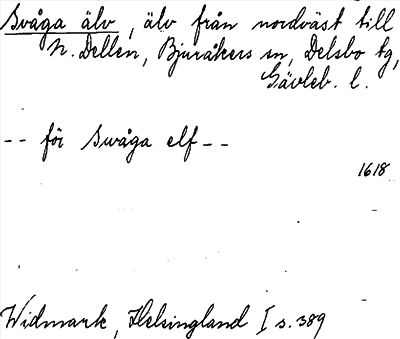 Svåga älv, älv från nordväst till
N. Dellen, Bjuråkers sn, Delsbo tg,
Gävleb. l.
-- för Swåga elf --
1618
Widmark, Helsingland I s. 389